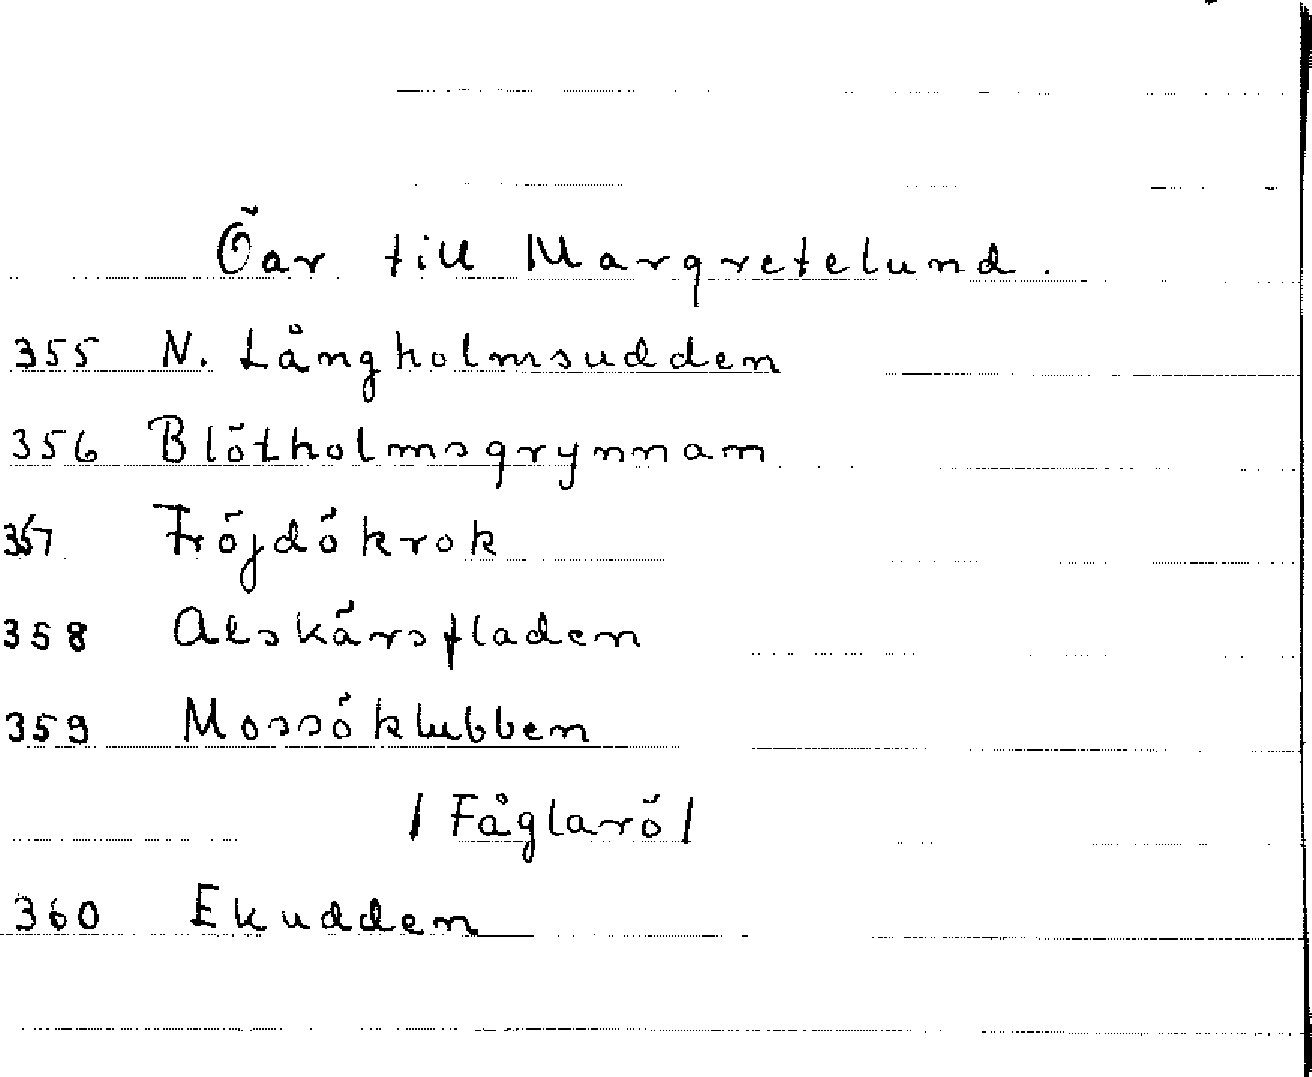 Öar till Margretelund.
355 N. Långholmsudden
356 Blötholmsgrynnan
357 Fröjdökrok
358 Alskärsfladen
359 Mossöklubben
/ Fåglarö /
360 Ekudden